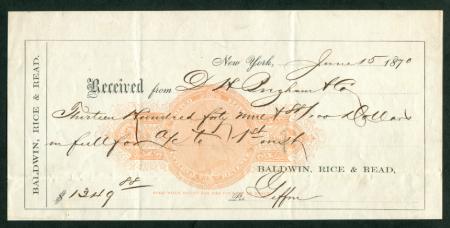 BALDWIN, RICE & READ.
New York, June 15 1870
Received from D H & Co
Thirteen Hundred forty nine & 88/100 Dollars
in full for a/c to 1st
BALDWIN, RICE & READ,
$1349 88